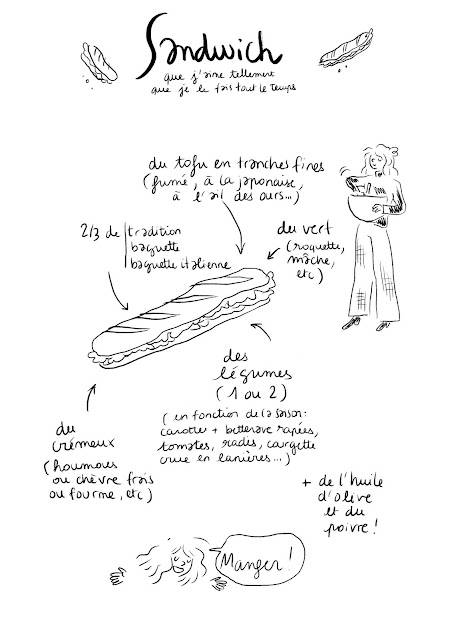 Sandwich
que j'aime tellement
que je le fais tout le temps
du tofu en tranches fines
(fumé, à la japonaise,
à l'ail des ours...)
2/3 de tradition
baguette
baguette italienne
du vert
(roquette,
mâche,
etc)
des
légumes
(1 ou 2)
(en fonction de la saison:
carottes + betterave rapées,
tomates, radis, courgette
crue en lanières...)
du
crémeux
(houmous
ou chèvre frais
ou fourme, etc)
+ de l'huile
d'olive
et du
poivre!
Manger!